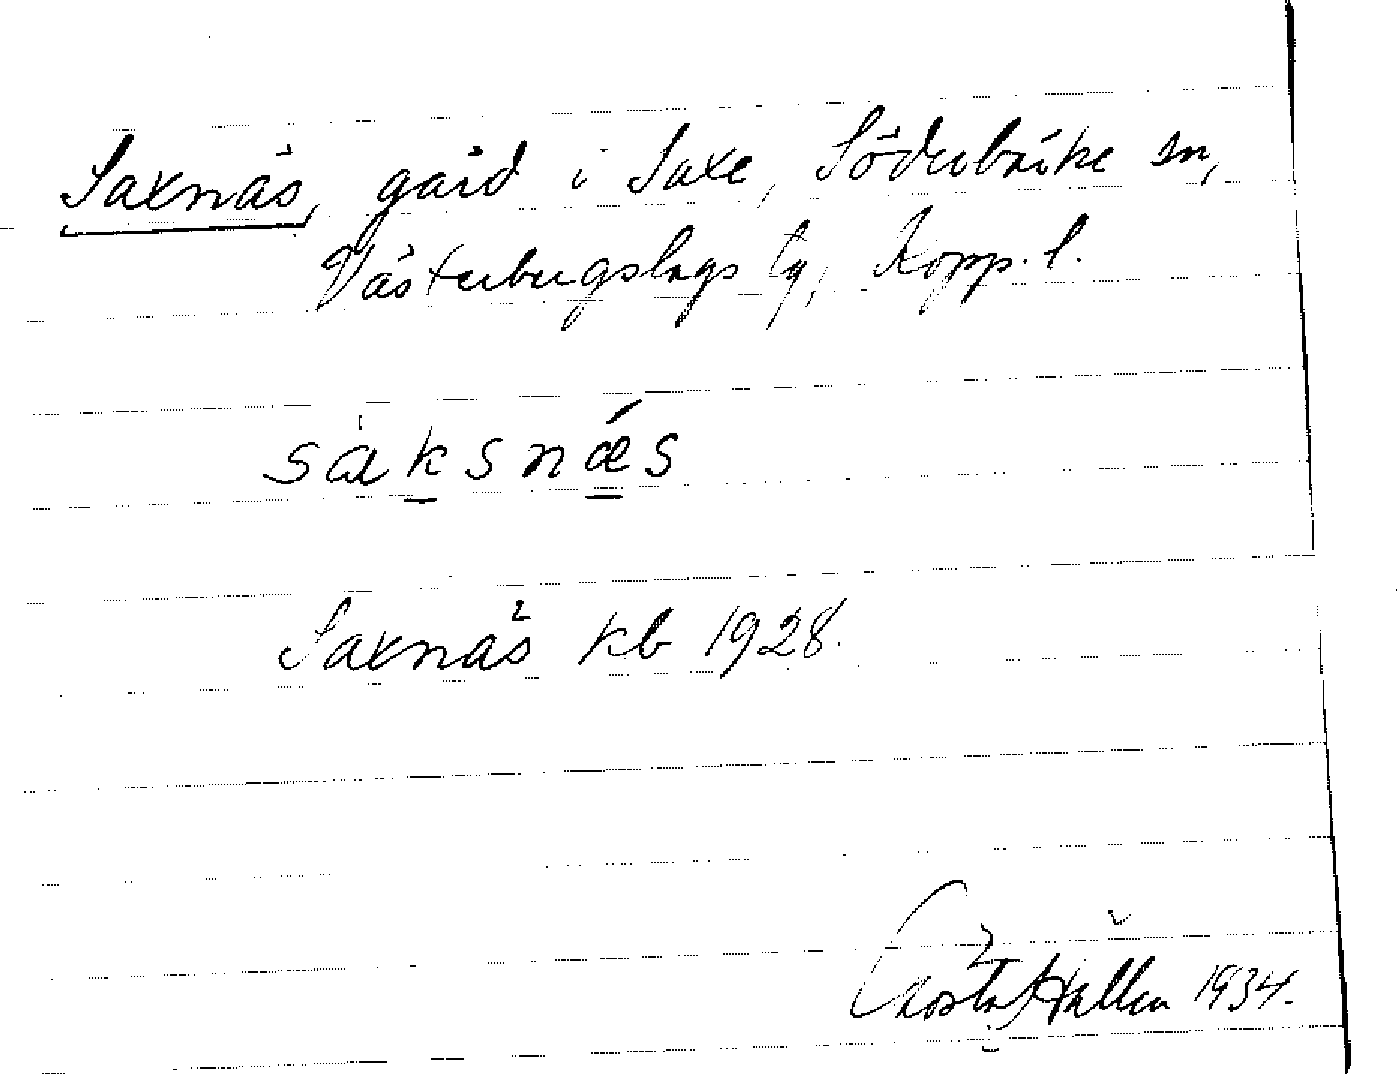 Saxnäs, gård i Saxe, Söderbärke sn,
Västerbergslags tg, Kopp. l.
sàksnǽs
Saxnäs kb 1928.
Gösta Hallén 1934.